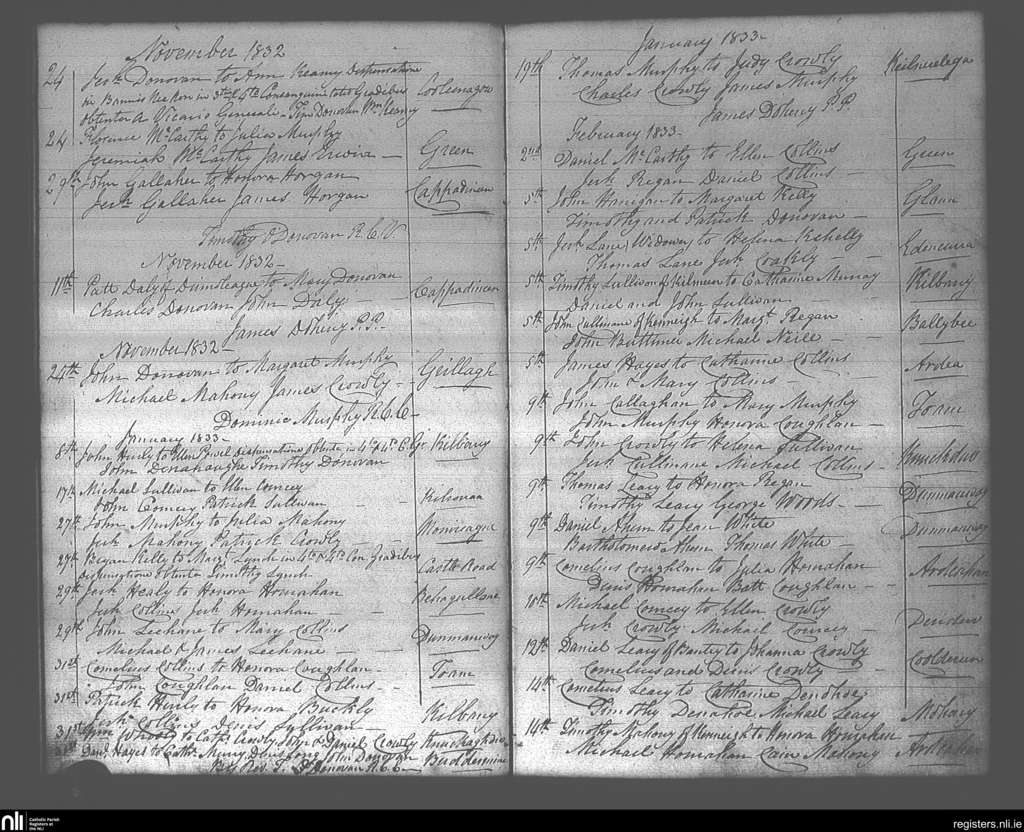 November 1832
24 Jerh. Donovan to Ann Keamy Dispensatione
in Bannis Necnon in 3tio & 4to Consanguinitatis Gradibus
obtenta A Vicario Generali - Timy Donovan Wm. Kearny Coolenagow
24 Florence McCarthy to Julia Murphy
Jeremiah McCarthy James Erwin Green
29th John Gallaher to Honora Horgan
Jerh. Gallaher James Horgan Cappadineen
Timothy O'Donovan R.C.C.
November 1832
11th Patt Daly of Dunmeague to Mary Donovan
Charles Donovan John Daly Cappadineen
James Doheny P.P.
November 1832
24th John Donovan to Margaret Murphy
Michael Mahony James Crowly Geillagh
Dominic Murphy R.C.C.
January 1833
8th John Hurly to Ellen dispensatione obtenta in 4to & 4to C. Gr Kilbany
John Donahoughe Timothy Donovan
17th Michael Sullivan to Ellen Comcey
John Comcey Patrick Sullivan
27th John Murphy to Julia Mahony
Jerh. Mahony Patrick Crowly
27th Bryan Kelly to Margt. Lynch in 4to & 4to Con Gradibus
dispensatione obtenta Timothy Lynch Castle Road
29th Jerh. Healy to Honora Hourahan
Jerh. Collins Jerh. Hourahan Behagullane
29th John Leehane to Mary Collins
Michael & James Leehane Dunmanway
31st Cornelius Collins to Honora Coughlan
John Coughlan Daniel Collins Toam
31st Patrick Hurly to Honora Buckly
Jerh. Collins Denis Sullivan Kilbany
31st to Cathe. Crowly & Daniel Crowly
31st Danl. Hayes to Cathe. John Donovan Buddermine
By Rev. T. O'Donovan R.C.C.
January 1833
19th Thomas Murphy to Judy Crowly
Charles Crowly James Murphy
James Doheny P.P.
February 1833
2nd Daniel McCarthy to Ellen Collins
Jerh. Regan Daniel Collins Green
5th John Hanigan to Margaret Kelly
Timothy and Patrick Donovan Glaun
5th Jerh. Lane (Widower) to Helena Kehelly
Thomas Lane Jerh. Coakly Edencurra
5th Timothy Sullivan of Kilmeen to Catharine Murray
Daniel and John Sullivan Kilbany
5th John Cullinane of Kenneigh to Margt. Regan
John Buttimer Michael Neile Ballybee
5th James Hayes to Catharine Collins
John & Mary Collins Ardea
9th John Callaghan to Mary Murphy
John Murphy Honora Coughlan Toam
9th John Crowly to Helena Sullivan
Jerh. Cullinane Michael Collins Knuckduv
9th Thomas Leary to Honora Regan
Timothy Leary George Woods Dunmanway
9th Daniel Ahern to Jean White
Bartholomew Ahern Thomas White Dunmanway
9th Cornelius Coughlan to Julia Hourahan
Denis Hourahan Batt Coughlan Ardcahan
10th Michael Comcey to Ellen Crowly
Jerh. Crowly Michael Comcey
12th Daniel Leary of Bantry to Johanna Crowly
Cornelius and Denis Crowly
14th Cornelius Leary to Catharine Donohoe
Timothy Donahoe Michael Leary Mohany
14th Timothy Mahony of Kenneigh to Honora Hourahan
Michael Hourahan Cain Mahony Ardcahan
nli Catholic Parish
Registers at
the NLI
registers.nli.ie